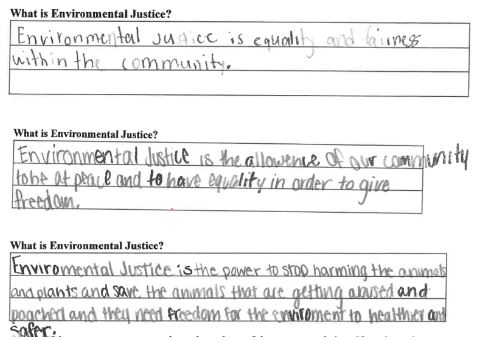 What is Environmental Justice?
Environmental Justice is equality and fairness
within the community.
What is Environmental Justice?
Environmental Justice is the allowence of our community
to be at peace and to have equality in order to give
freedom.
What is Environmental Justice?
Enviromental Justice is the power to stop harming the animals
and plants and save the animals that are getting abused and
poached and they need freedom for the enviroment to healthier and
safer.